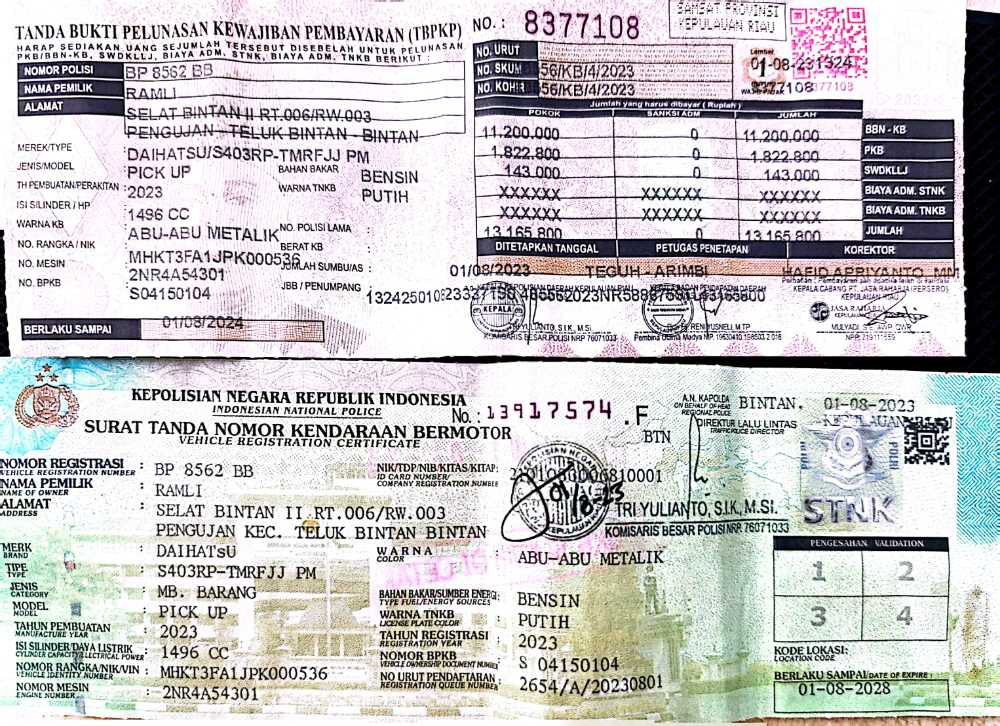 TANDA BUKTI PELUNASAN KEWAJIBAN PEMBAYARAN (TBPKP)
HARAP SEDIAKAN UANG SEJUMLAH TERSEBUT DISEBELAH UNTUK PELUNASAN
PKB/BBN-KB, SWDKLLJ, BIAYA ADM. STNK, BIAYA ADM. TNKB BERIKUT :
NO. : 8377108
SAMSAT PROVINSI
KEPULAUAN RIAU
NOMOR POLISI BP 8562 BB
NAMA PEMILIK RAMLI
ALAMAT SELAT BINTAN II RT.006/RW.003
PENGUJAN - TELUK BINTAN - BINTAN
MEREK/TYPE DAIHATSU/S403RP-TMRFJJ PM
JENIS/MODEL PICK UP
BAHAN BAKAR BENSIN
TH PEMBUATAN/PERAKITAN : 2023
WARNA TNKB PUTIH
ISI SILINDER / HP 1496 CC
WARNA KB : ABU-ABU METALIK
NO. POLISI LAMA :
NO. RANGKA / NIK : MHKT3FA1JPK000536
BERAT KB
NO. MESIN : 2NR4A54301
JUMLAH SUMBU/AS :
NO. BPKB : S04150104
JBB / PENUMPANG :
BERLAKU SAMPAI 01/08/2024
NO. URUT
NO. SKUM 56/KB/4/2023
NO. KOHIR 56/KB/4/2023
Lembar
1
01-08-231324
8377108
8377108
Jumlah yang harus dibayar ( Rupiah )
POKOK SANKSI ADM JUMLAH
11.200.000 0 11.200.000 BBN - KB
1.822.800 0 1.822.800 PKB
143.000 0 143.000 SWDKLLJ
XXXXXX XXXXXX XXXXXX BIAYA ADM. STNK
XXXXXX XXXXXX XXXXXX BIAYA ADM. TNKB
13.165.800 0 13.165.800 JUMLAH
DITETAPKAN TANGGAL PETUGAS PENETAPAN KOREKTOR
01/08/2023 TEGUH - ARIMBI HAFID APRIYANTO, MM
KEPALA CABANG PT. JASA RAHARJA (PERSERO)
KEPULAUAN RIAU
KEPALA
JASA RAHARJA
TRI YULIANTO, S.I.K, M.Si.
KOMISARIS BESAR POLISI NRP 76071033
KEPOLISIAN NEGARA REPUBLIK INDONESIA
INDONESIAN NATIONAL POLICE
No. : 13917574 .F
SURAT TANDA NOMOR KENDARAAN BERMOTOR
VEHICLE REGISTRATION CERTIFICATE
BTN
A.N. KAPOLDA
ON BEHALF OF HEAD REGIONAL POLICE
BINTAN, 01-08-2023
DIREKTUR LALU LINTAS
TRAFFIC POLICE DIRECTOR
STNK
TRI YULIANTO, S.I.K, M.Si.
KOMISARIS BESAR POLISI NRP 76071033
NOMOR REGISTRASI : BP 8562 BB
VEHICLE REGISTRATION NUMBER
NIK/TDP/NIB/KITAS/KITAP:
ID CARD NUMBER/
COMPANY REGISTRATION NUMBER
NAMA PEMILIK : RAMLI
NAME OF OWNER
ALAMAT : SELAT BINTAN II RT.006/RW.003
ADDRESS
PENGUJAN KEC. TELUK BINTAN BINTAN
MERK : DAIHATsU
BRAND
WARNA : ABU-ABU METALIK
COLOR
TIPE : S403RP-TMRFJJ PM
TYPE
JENIS : MB. BARANG
CATEGORY
BAHAN BAKAR/SUMBER ENERGI : BENSIN
TYPE FUEL/ENERGY SOURCES
MODEL : PICK UP
MODEL
WARNA TNKB : PUTIH
LICENSE PLATE COLOR
TAHUN PEMBUATAN : 2023
MANUFACTURE YEAR
TAHUN REGISTRASI : 2023
REGISTRATION YEAR
ISI SILINDER/DAYA LISTRIK : 1496 CC
CYLINDER CAPACITY/ELECTRICAL POWER
NOMOR BPKB : S 04150104
VEHICLE OWNERSHIP DOCUMENT NUMBER
NOMOR RANGKA/NIK/VIN : MHKT3FA1JPK000536
VEHICLE IDENTITY NUMBER
NO URUT PENDAFTARAN : 2654/A/20230801
REGISTRATION QUEUE NUMBER
NOMOR MESIN : 2NR4A54301
ENGINE NUMBER
PENGESAHAN VALIDATION
1 2
3 4
KODE LOKASI:
LOCATION CODE
BERLAKU SAMPAI/DATE OF EXPIRE :
01-08-2028